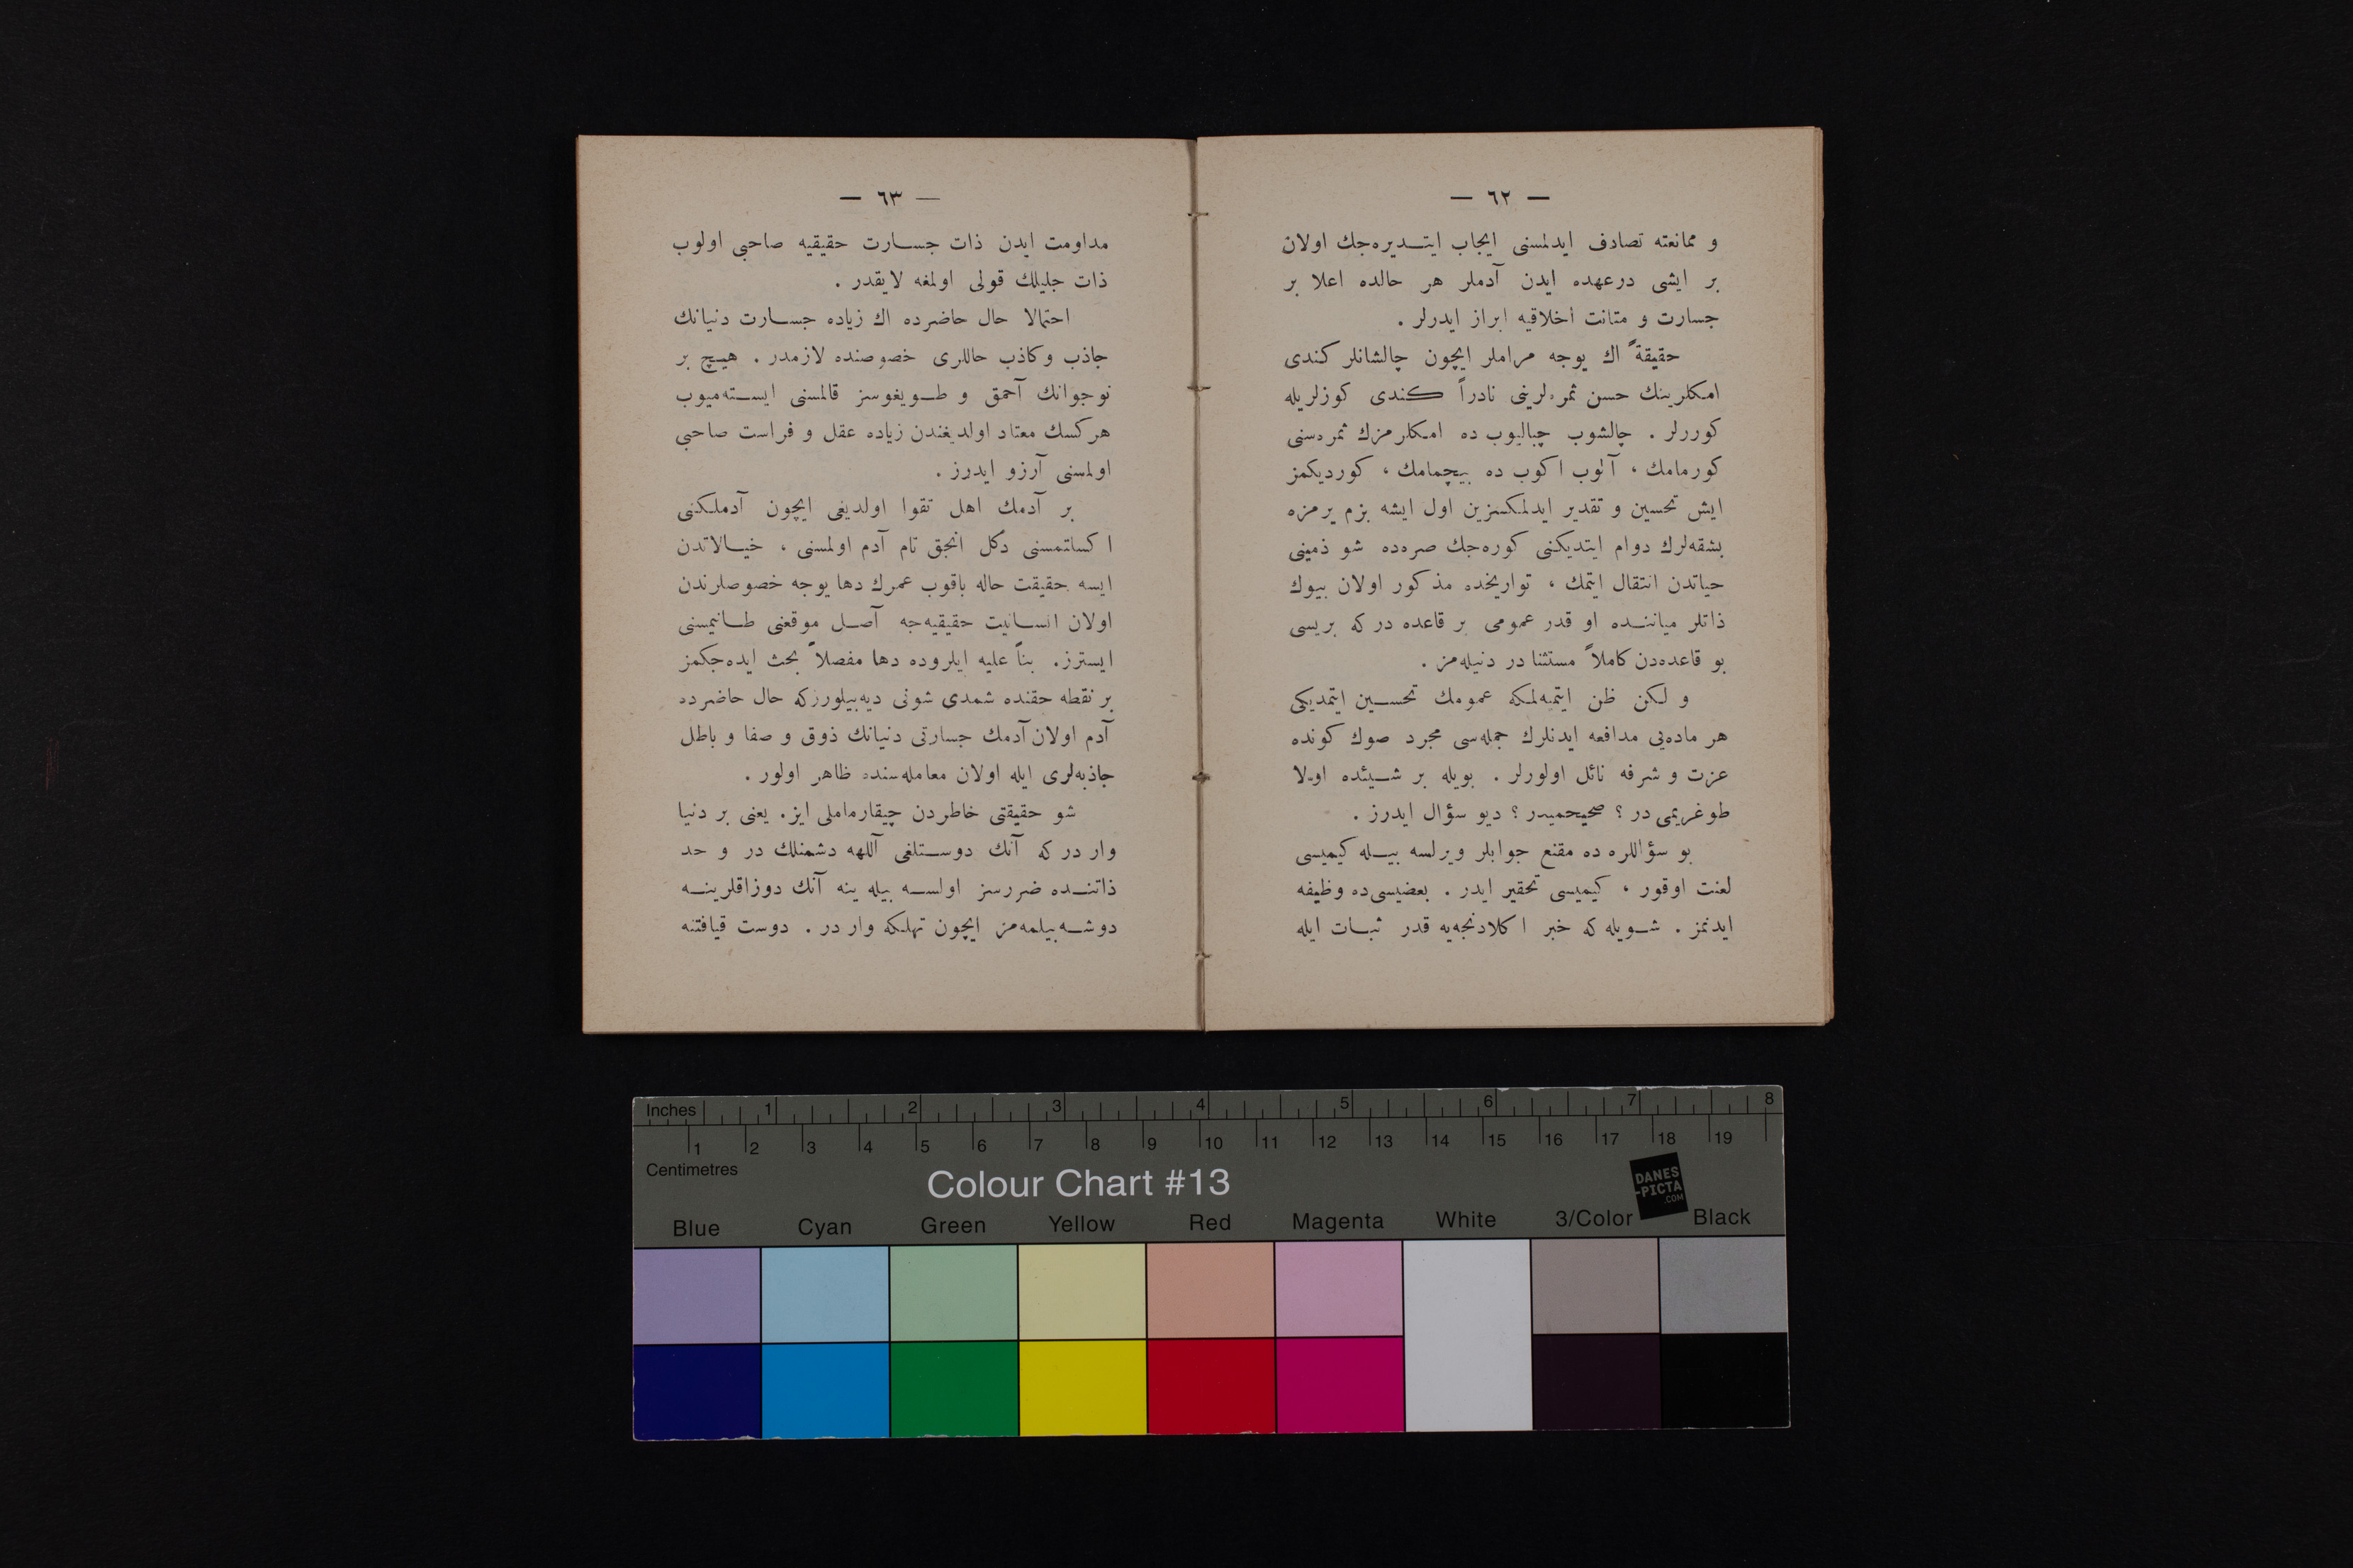 — ٦٢ —
و ممانعته تصادف ايدلمسنى ايجاب ايتـديره‌جك اولان
بر ايشى درعهده ايدن آدملر هر حالده اعلا بر
جسارت و متانت اخلاقيه ابراز ايدرلر .
حقيقةً اك يوجه مراملر ايچون چالشانلر كندى
امكلرينك حسن ثمره‌لرينى نادراً كندى كوزلريله
كوررلر . چالشوب چباليوب ده امكلرمزك ثمره‌سنى
كورمامك ، آلوب اكوب ده بيچمامك ، كورديكمز
ايش تحسين و تقدير ايدلمكسزين اول ايشه بزم يرمزه
بشقه‌لرك دوام ايتديكنى كوره‌جك صره‌ده شو ذمينى
حياتدن انتقال ايتمك ، تواريخده مذكور اولان بيوك
ذاتلر مياننـده او قدر عمومى بر قاعده در كه بريسى
بو قاعده‌دن كاملاً مستثنا در دنيله‌مز .
و لكن ظن ايتميه‌لمكه عمومك تحسـين ايتمديكى
هر ماده‌يى مدافعه ايدنلرك جمله‌سى مجرد صوك كونده
عزت و شرفه نائل اولورلر . بويله بر شـيئده اولا
طوغريمى در ؟ صحيحميدر ؟ ديو سؤال ايدرز .
بو سؤاللره ده مقنع جوابلر ويرلسه بيـله كيميسى
لعنت اوقور ، كيميسى تحقير ايدر . بعضيسى‌ده وظيفه
ايدنمز . شـويله كه خبر اكلادنجه‌يه قدر ثبـات ايله
— ٦٣ —
مداومت ايدن ذات جسـارت حقيقيه صاحبى اولوب
ذات جليلك قولى اولمغه لايقدر .
احتمالا حال حاضرده اك زياده جسـارت دنيانك
جاذب وكاذب حاللرى خصوصنده لازمدر . هيـچ بر
نوجوانك آحمق و طـويغوسز قالمسنى ايسـته‌ميوب
هركسك معتاد اولديغندن زياده عقل و فراست صاحبى
اولمسنى آرزو ايدرز .
بر آدمك اهل تقوا اولديغى ايچون آدملكنى
اكساتمسنى دكل انجق تام آدم اولمسنى ، خيـالاتدن
ايسه حقيقت حاله باقوب عمرك دها يوجه خصوصلرندن
اولان انسـانيت حقيقيه‌جه آصـل موقعنى طـانيمسنى
ايسترز. بناً عليه ايلروده دها مفصلاً بحث ايده‌جكمز
بر نقطه حقنده شمدى شونى ديه‌بيلورزكه حال حاضرده
آدم اولان آدمك جسارتى دنيانك ذوق و صفا و باطل
جاذبه‌لرى ايله اولان معامله‌سنده ظاهر اولور .
شو حقيقتى خاطردن چيقارماملى ايز. يعنى بر دنيا
وار در كه آنك دوسـتلغى آللهه دشمنلك در و حد
ذاتنـده ضررسز اولسـه بيله ينه آنك دوزاقلرينـه
دوشـه‌بيلمه‌مز ايچون تهلكه وار در . دوست قيافتنه
Inches 1 2 3 4 5 6 7 8
1 2 3 4 5 6 7 8 9 10 11 12 13 14 15 16 17 18 19
Centimetres
Colour Chart #13
DANES
-PICTA
.COM
Blue Cyan Green Yellow Red Magenta White 3/Color Black